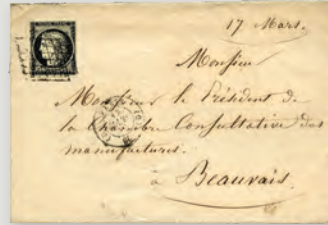 17 Mars.
Monsieur
Monsieur le Président de
la Chambre Consultative des
manufactures.
à
Beauvais.